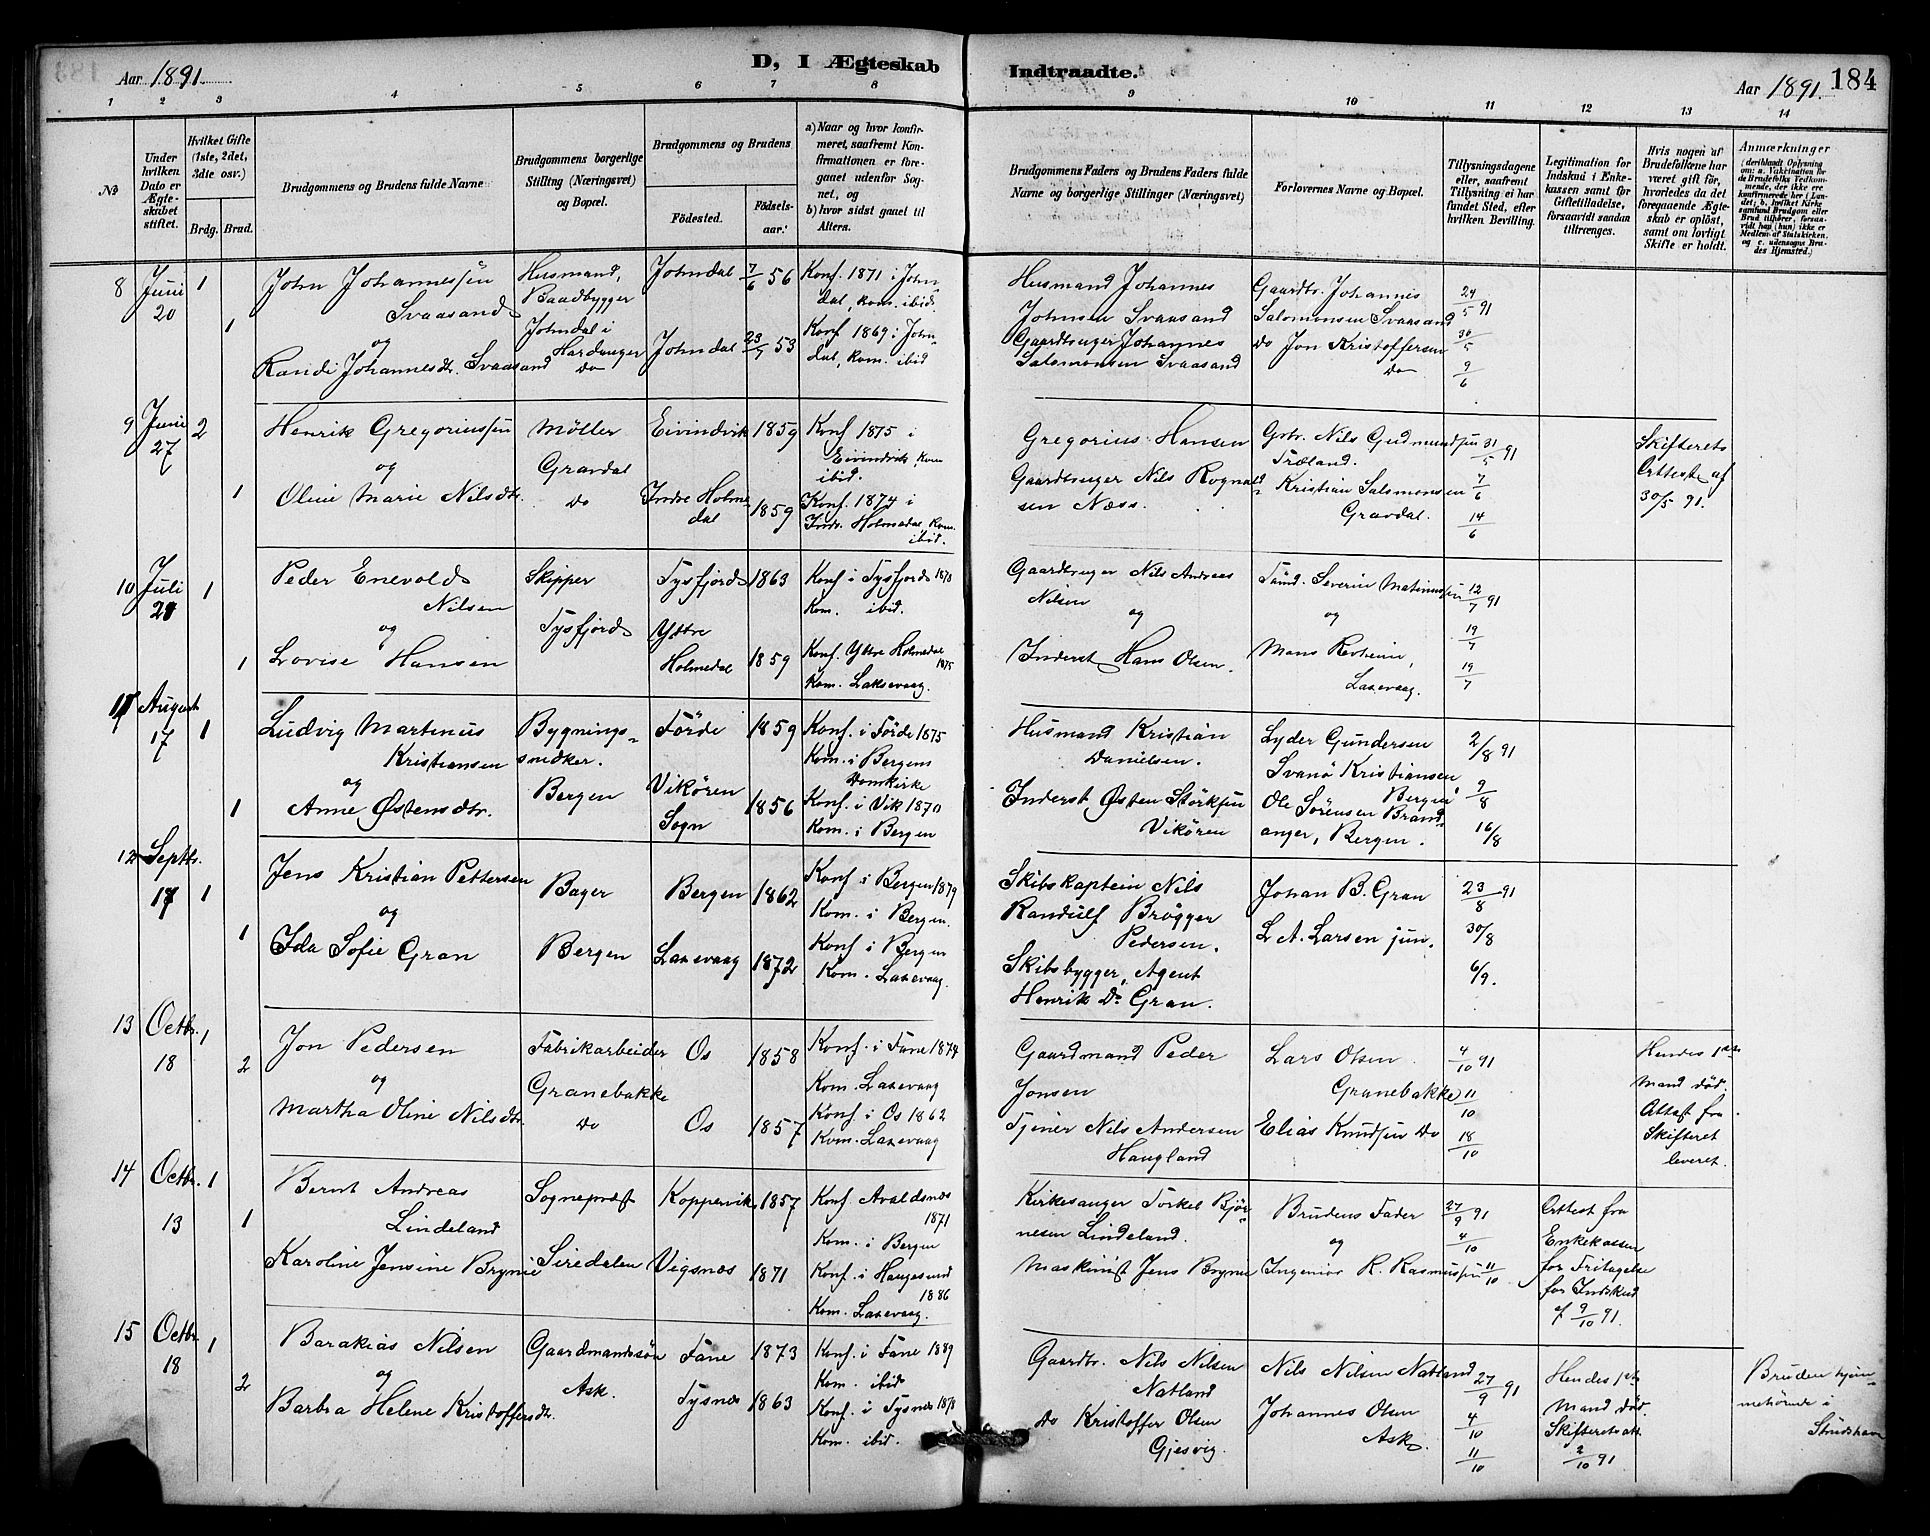 Aar 1891.
D, I Ægteskab
Indtraadte.
Aar 1891.
184
1 2 3 4 5 6 7 8 9 10 11 12 13 14
No
Under hvilken Dato er Ægteskabet stiftet.
Hvilket Gifte (1ste, 2det, 3die osv.)
Brdg. Brud.
Brudgommens og Brudens fulde Navne
Brudgommens borgerlige Stilling (Næringsvei) og Bopæl.
Brudgommens og Brudens
Födested.
Födselsaar.
a) Naar og hvor konfirmeret, saafremt Konfirmationen er foregaaet udenfor Sognet, og
b) hvor sidst gaaet til Alters.
Brudgommens Faders og Brudens Faders fulde Navne og borgerlige Stillinger (Næringsvei)
Forlovernes Navne og Bopæl.
Tillysningsdagene eller, saafremt Tillysning ei har fundet Sted, efter hvilken Bevilling.
Legitimation for Indskud i Enkekassen samt for Giftetilladelse, forsaavidt saadan tiltrænges.
Hvis nogen af Brudefolkene har været gift för, hvorledes da det foregaaende Ægteskab er oplöst, samt om lovligt Skifte er holdt.
Anmærkninger
(deriblandt Oplysning om: a. Vakcination for de Brudefolks Vedkommende, der ikke ere konfirmerede her i Landet; b. hvilket Kirkesamfund Brudgom eller Brud tilhörer, forsaavidt han (hun) ikke er Medlem af Statskirken, og c. udensogns Brudes Hjemsted.)
8 Juni 20 1 John Johannessön Svaasand
Husmand, Baadbygger Johndal i Hardanger
Johndal 7/6 56 Konf. 1871 i Johndal, kom. ibid.
Husmand Johannes Johnsen Svaasand
Gaardbr. Johannes Salomonsen Svaasand
24/5 91 30/5 9/6
og
1 Randi Johannesdr. Svaasand
Do Johndal 23/7 53 Konf 1869 i Johndal, kom. ibid
Gaardbruger Johannes Salomonsen Svaasand
Do Jon Kristoffersen Do
9 Juni 27 2 Henrik Gregoriussön
Möller Gravdal
Eivindvik 1859 Konf 1875 i Eivindvik, kom ibid.
Gregorius Hansen
Gbr. Nils Gudmundsön Træland.
31/5 91 7/6 14/6
Skifterets Attest af 30/5 91.
og
1 Oline Marie Nilsdtr.
Do Indre Holmedal 1859 Konf. 1874 i Indr. Holmedal, kom. ibid.
Gaardbruger Nils Rognaldsen Næss.
Kristian Salomonsen Gravdal.
10 Juli 21 1 Peder Enevold Nilsen
Skipper Tysfjord
Tysfjord 1863 Konf i Tysfjord 1878 Kom. ibid.
Gaardbruger Nils Andreas Nilsen
og
Severin Matinussön
12/7 91 19/7 19/7
og
1 Lovise Hansen
Ydtre Holmedal 1859 Konf. Yttre Holmedal 1875 Kom. Laksevaag.
Inderst Hans Olsen.
og
Mons Laxevaag.
11 August 17 1 Ludvig Martinus Kristiansen
Bygningssnedker. Bergen
Förde 1859 Konf. i Förde 1875 Kom. i Bergens Domkirke
Husmand Kristian Danielsen.
Lyder Gundersen Svanö Kristiansen Bergen
2/8 91 9/8 16/8
og
1 Anne Østensdtr.
Vikören Sogn 1856 Konf. i Vik 1870 Kom. i Bergen
Inderst, Østen Störksön Vikören
Ole Sörensen Brandanger, Bergen.
12 Septbr. 17 1 Jens Kristian Pettersen
Bager Bergen
Bergen 1862 Konf. i Bergen 1879 Kom. i Bergen.
Skibskaptein Nils Randulf Brøgger Pedersen.
Johan B. Gran
23/8 91 30/8 6/9.
og
1 Ida Sofie Gran
Laxevaag 1872 Konf. i Bergen Kom. Laxevaag.
Skibsbygger, Agent Henrik D. Gran.
L A. Larsen jun.
13 Octbr. 18 1 Jon Pedersen
Fabrikarbeider Granebakke
Os 1858 Konf. i Fane 1874 Kom. Laxevaag
Gaardmand Peder Jonsen
Lars Olsen Granebakke
4/10 91 11/10 18/10
Hendes 1ste Mand död. Attest fra Skifteret leveret.
og
2 Martha Oline Nilsdtr.
Do Os 1857 Konf. i Os 1862 Kom. Laxevaag
Tjener Nils Andersen Haugland
Elias Knudsön Do
14 Octbr. 13 1 Bernt Andreas Lindeland
Sogneprest Siredalen
Koppervik 1857 Konf. Avaldsnæs 1871 Kom. i Bergen
Kirkesanger Torkel Bjørnesen Lindeland.
Brudens Fader og
27/9 91 4/10 11/10
Attest fra Enkekassen for Fritagelse for Indskud af 9/10 91.
1 Karoline Jensine Bryne
Vigsnæs 1871 Konf. i Haugesund 1886 Kom. Laxevaag.
Maskinist Jens Bryne
Ingeniör R. Rasmussön
15 Octbr. 18 1 Barakias Nilsen
Gaardmandssön Ask.
Fane 1873 Konf. i Fane 1889 Kom. ibid
Gaardbr. Nils Nilsen Natland
Nils Nilsen Natland
27/9 91 4/10 11/10
Hendes 1ste Mand död. Skifteretsatt. 2/10 91
Bruden hjemmehörende i
og
2 Barbra Helene Kristoffersdtr.
Tysnæs 1863 Konf. i Tysnæs 1878 Kom. ibid.
Do Kristoffer Olsen Gjesvig
Johannes Olsen Ask.